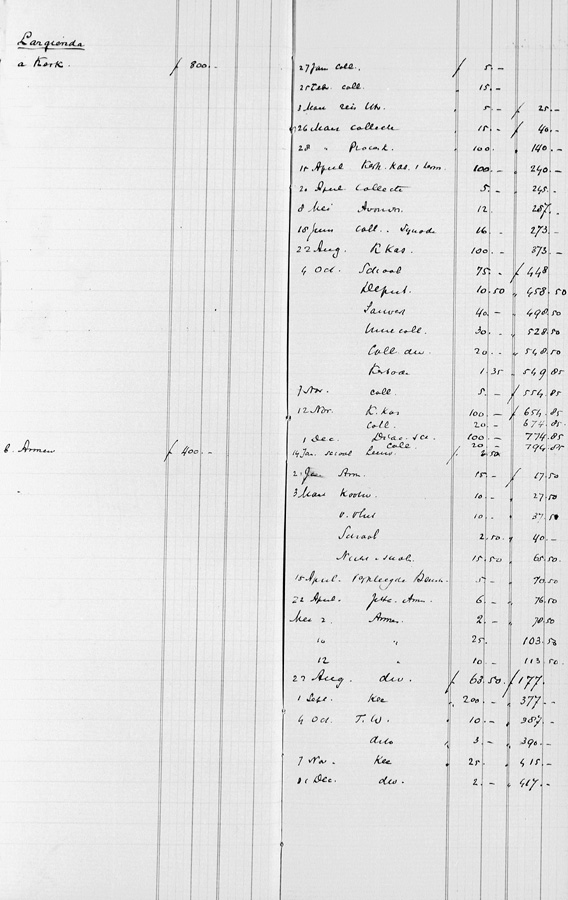 Largienda
a Kerk. f 800.-
27 Jan coll. f 5.-
25 Feb. coll. 15.-
1 Maa 5.- f 25.-
26 Maa collecte 15.- f 40.-
28 " 100. 140.-
15 April Kerk. Kas. 1 term. 100.- 240.-
20 April Collecte 5.- 245.-
8 Mei 12. 257.-
18 Juni Coll. 16.- 273.-
22 Aug. K Kas 100.- 373.-
4 Oct. School 75.- f 448
Deput. 10.50 " 458.50
40.- " 498.50
coll. 30.- " 528.50
Coll. div. 20.- " 548.50
Kerbode 1.35 " 549.85
7 Nov. coll. 5.- f 554.85
12 Nov. K. Kas 100.- f 654.85
Coll. 20.- 674.85
1 Dec. 100.- 774.85
Coll. 20.- 794.85
b. Armen f 400.-
14 Jan. school f 2.50
Arm. 15.- f 17.50
3 Maa 10.- " 27.50
v. Vliet 10.- " 37.50
School 2.50 " 40.-
15.50 " 65.50
15 April. 5.- " 70.50
22 April. Arm. 6.- " 76.50
Mei 2. Armen 2.- " 78.50
10 " 25. 103.50
12 " 10.- " 113.50
27 Aug. div. f 63.50 f 177.
1 Sept. Kee " 200.- " 377.-
4 Oct. T.W. " 10.- " 387.-
dito " 3.- " 390.-
7 Nov. Kee " 25.- " 415.-
31 Dec. div. " 2.- " 417.-